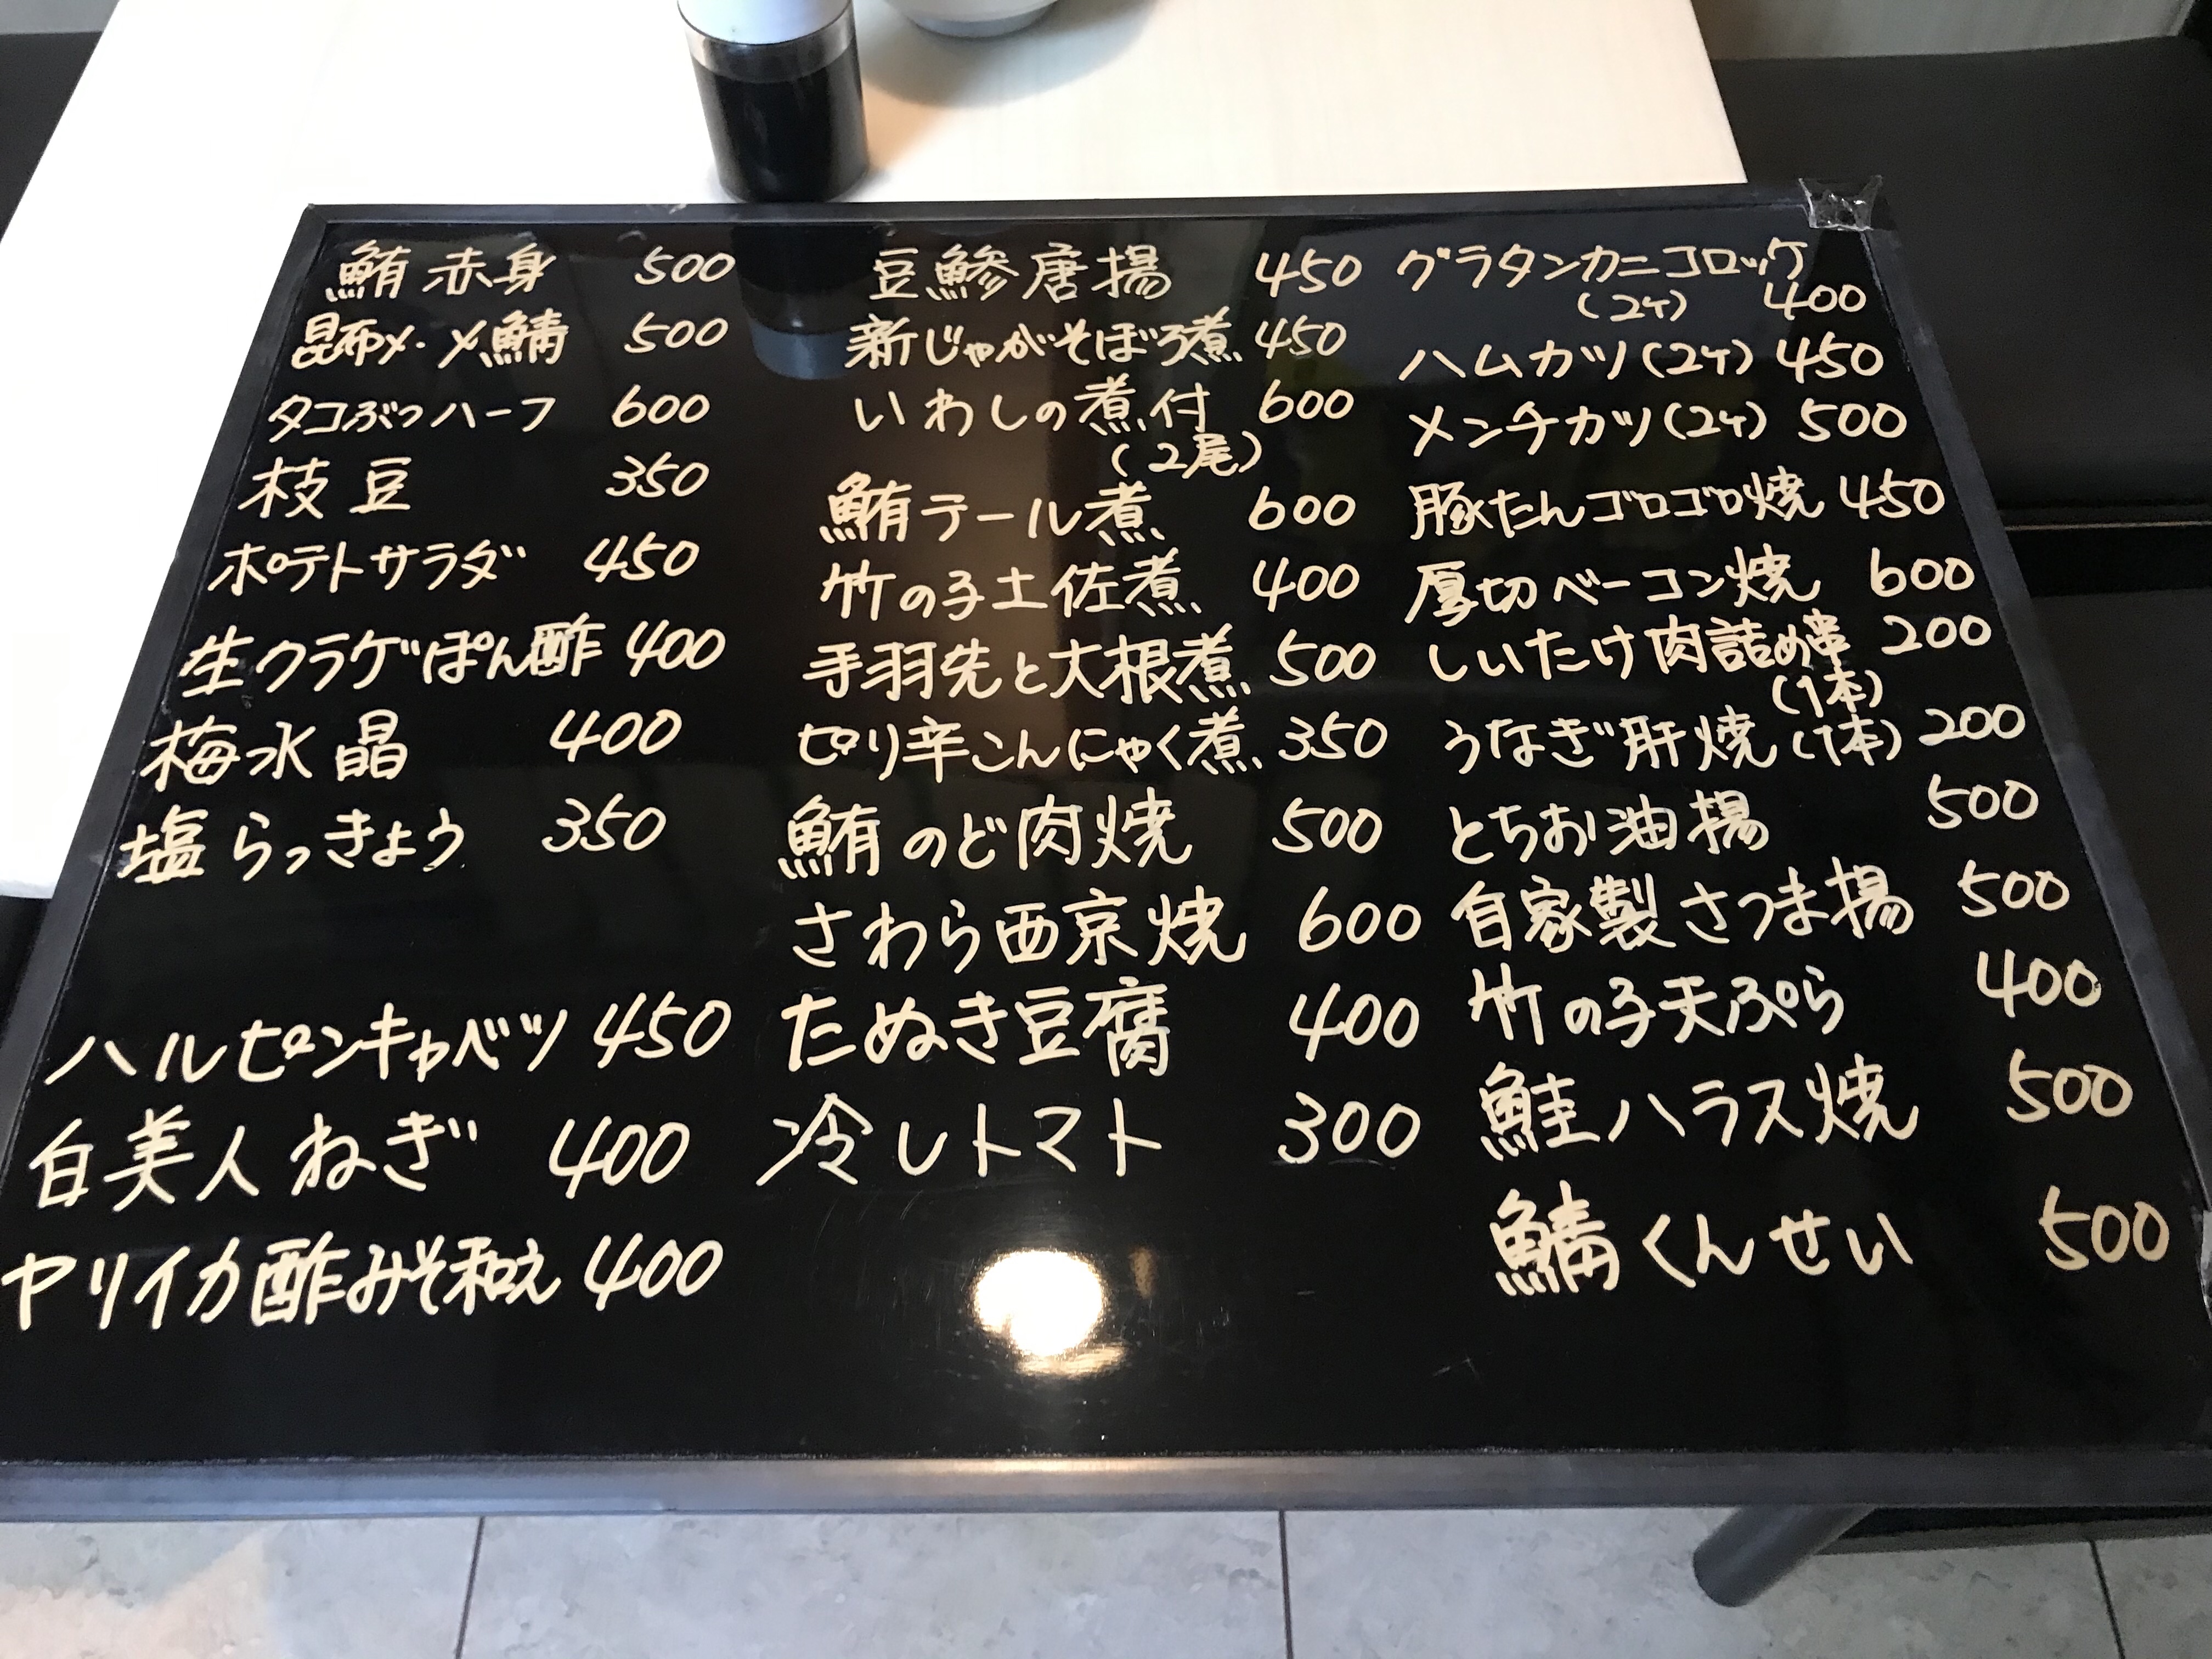 鮪赤身 500
昆布〆・〆鯖 500
タコぶつハーフ 600
枝豆 350
ポテトサラダ 450
生クラゲぽん酢 400
梅水晶 400
塩らっきょう 350
ハルピンキャベツ 450
白美人ねぎ 400
ヤリイカ酢みそ和え 400
豆鯵唐揚 450
新じゃがそぼろ煮 450
いわしの煮付 600
(2尾)
鮪テール煮 600
竹の子土佐煮 400
手羽先と大根煮 500
ピリ辛こんにゃく煮 350
鮪のど肉焼 500
さわら西京焼 600
たぬき豆腐 400
冷しトマト 300
グラタンカニコロッケ
(2ケ) 400
ハムカツ(2ケ) 450
メンチカツ(2ケ) 500
豚たんゴロゴロ焼 450
厚切ベーコン焼 600
しいたけ肉詰め串 200
(1本)
うなぎ肝焼(1本) 200
とちお油揚 500
自家製さつま揚 500
竹の子天ぷら 400
鮭ハラス焼 500
鯖くんせい 500